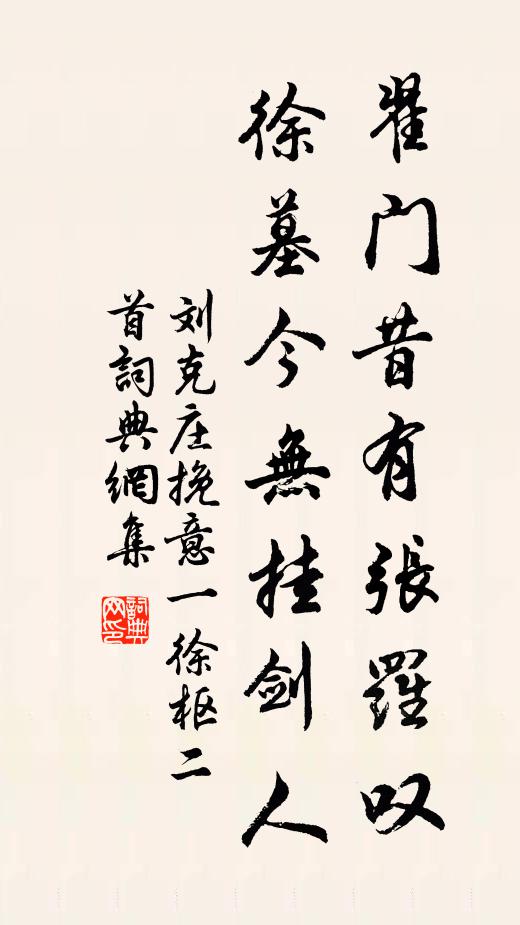 翟门昔有張羅叹
徐墓今無挂剑人
刘克庄挽意一徐枢二
首詞典網集
詞典网印